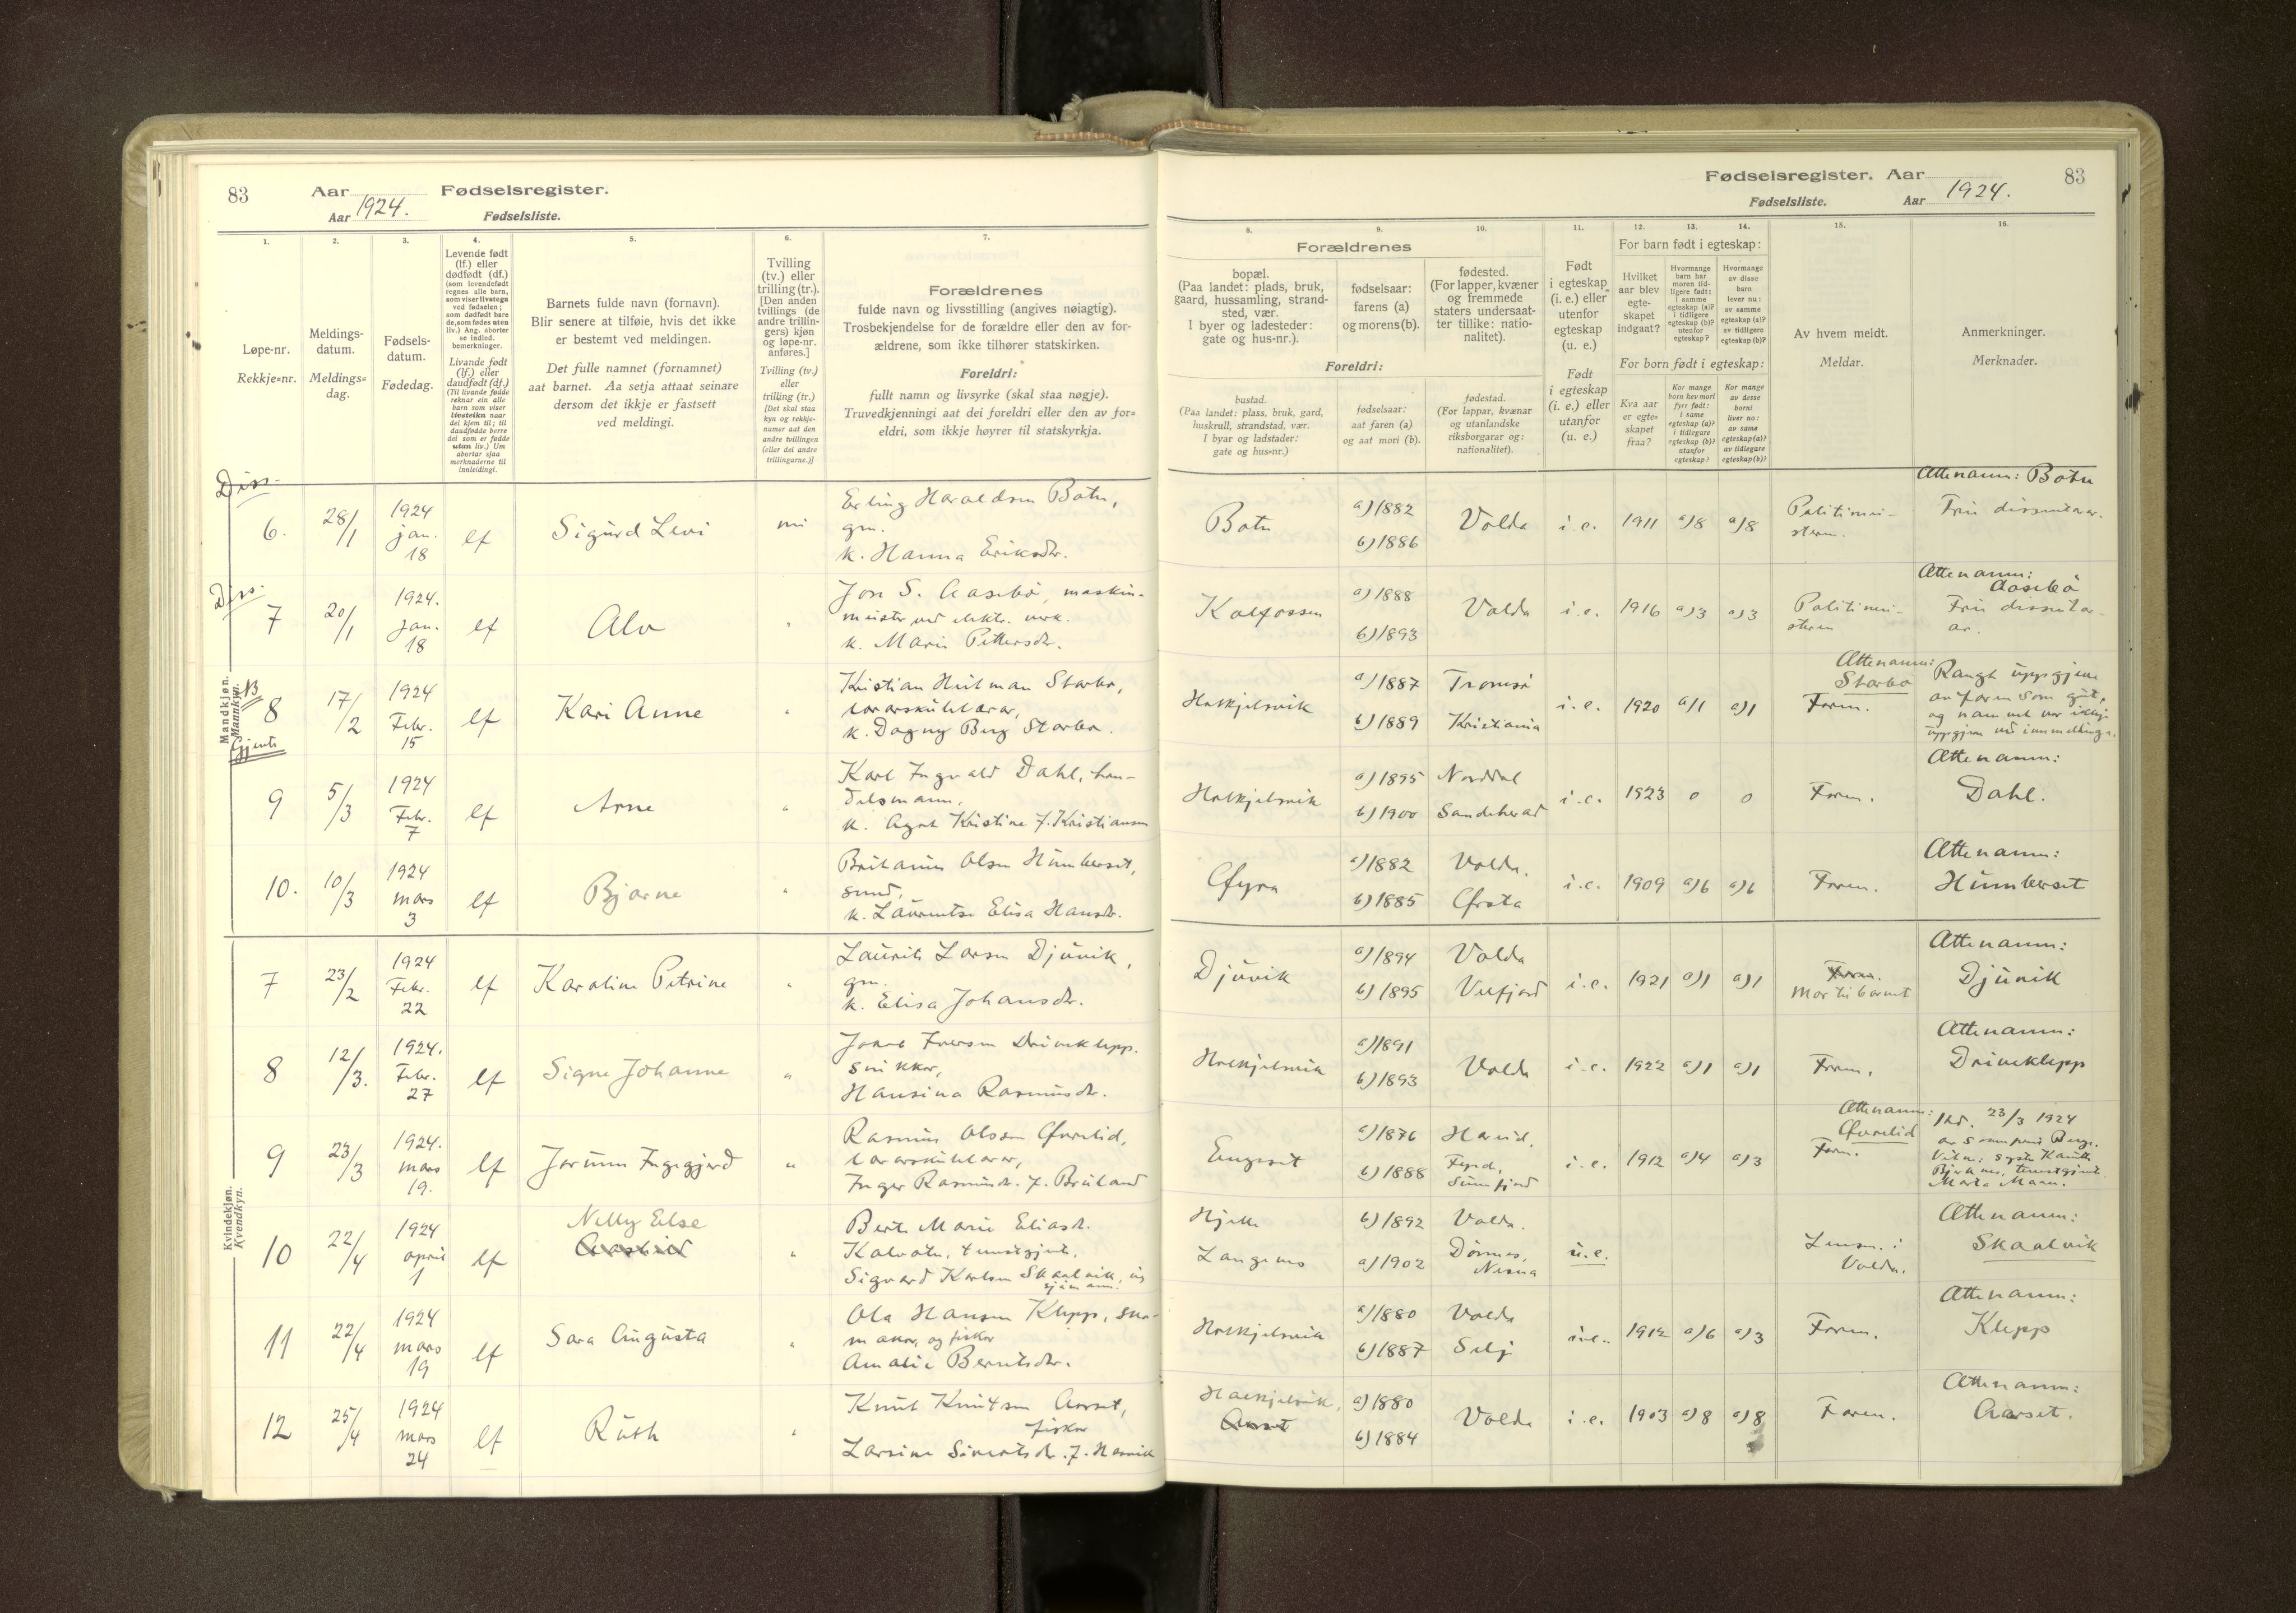 83
Aar Fødselsregister.
Aar 1924. Fødselsliste.
Fødselsregister. Aar
Fødselsliste. Aar 1924.
83
1.
Løpe-nr.
Rekkje=nr.
2.
Meldings-
datum.
Meldings=
dag.
3.
Fødsels-
datum.
Fødedag.
4.
Levende født
(lf.) eller
dødfødt (df.)
(som levendefødt
regnes alle barn,
som viser livstegn
ved fødselen;
som dødfødt bare
de, som fødes uten
liv.) Ang. aborter
se indled.
bemerkninger.
Livande født
(lf.) eller
daudfødt (df.)
(Til livande fødde
reknar ein alle
barn som viser
livsteikn naar
dei kjem til; til
daudfødde berre
dei som er fødde
utan liv.) Um
abortar sjaa
merknaderne til
innleidingi.
5.
Barnets fulde navn (fornavn).
Blir senere at tilføie, hvis det ikke
er bestemt ved meldingen.
Det fulle namnet (fornamnet)
aat barnet. Aa setja attaat seinare
dersom det ikkje er fastsett
ved meldingi.
6.
Tvilling
(tv.) eller
trilling (tr.).
[Den anden
tvillings (de
andre trillin-
gers) kjøn
og løpe-nr.
anføres.]
Tvilling (tv.)
eller
trilling (tr.)
[Det skal staa
kyn og rekkje-
numer aat den
andre tvillingen
(eller dei andre
trillingarne.)]
7.
Forældrenes
fulde navn og livsstilling (angives nøiagtig).
Trosbekjendelse for de forældre eller den av for-
ældrene, som ikke tilhører statskirken.
Foreldri:
fullt namn og livsyrke (skal staa nøgje).
Truvedkjenningi aat dei foreldri eller den av for=
eldri, som ikkje høyrer til statskyrkja.
8.
Forældrenes
bopæl.
(Paa landet: plads, bruk,
gaard, hussamling, strand-
sted, vær.
I byer og ladesteder:
gate og hus-nr.).
Foreldri:
bustad.
(Paa landet: plass, bruk, gard,
huskrull, strandstad, vær.
I byar og ladstader:
gate og hus=nr.)
9.
fødselsaar:
farens (a)
og morens (b).
fødselsaar:
aat faren (a)
og aat mori (b).
10.
fødested.
(For lapper, kvæner
og fremmede
staters undersaat-
ter tillike: natio-
nalitet).
fødestad.
(For lappar, kvænar
og utanlandske
riksborgarar og:
nationalitet).
11.
Født
i egteskap
(i. e.) eller
utenfor
egteskap
(u. e.)
Født
i egteskap
(i. e.) eller
utanfor
(u. e.)
For barn født i egteskap:
12.
Hvilket
aar blev
egte-
skapet
indgaat?
For born født i egteskap:
Kva aar
er egte=
skapet
fraa?
13.
Hvormange
barn har
moren tid-
ligere født:
i samme
egteskap (a)?
i tidligere
egteskap (b)?
utenfor
egteskap?
Kor mange
born hev mori
fyrr født:
i same
egteskap (a)?
i tidlegare
egteskap (b)?
utanfor
egteskap?
14.
Hvormange
av disse
barn
lever nu:
av samme
egteskap (a)?
av tidligere
egteskap (b)?
Kor mange
av desse
borni
liver no:
av same
egteskap (a)?
av tidlegare
egteskap (b)?
15.
Av hvem meldt.
Meldar.
16.
Anmerkninger.
Merknader.
Mandkjøn.
Mannkyn.
Diss.
6. 28/1 1924 jan. 18 lf Sigurd Levi nei
Erling Haraldsen Botn,
gm.
k. Hanna Eriksdr.
Botn a) 1882 b) 1886 Volda i. e. 1911 a) 8 a) 8
Ættenamn: Botn
Diss.
7 20/1 1924. jan. 18 lf Alv "
Jon S. Aasebø, maskin-
meister ved elektr. verk.
k. Marie Pettersdr.
a) 1888 b) 1893 Volda i. e. 1916 a) 3 a) 3
Ættenamn:
Aasebø
NB
8 17/2 1924 Febr. 15 lf Kari Anne "
Gjente
Kristian Heitman Starbo,
lærarskulelærar,
k. Dagny Berg Starbo.
a) 1887 Tromsø b) 1889 Kristiania i. e. 1920 a) 1 a) 1
Ættenamn:
Starbo
Faren.
9 5/3 1924 Febr. 7 lf Arne "
Karl Ingvald Dahl, han-
delsmann,
k. Agnt Kristine f. Kristiansen
a) 1895 Norddal b) 1900 Sandeherad i. e. 1923 0 0 Faren.
Ættenamn:
Dahl.
10. 10/3 1924 mars 3 lf Bjarne "
Olsen Humberset,
smed,
k. Laurentse Elisa Hansdr.
Øyra a) 1882 Volda. b) 1885 Ørsta i. e. 1909 a) 6 a) 6 Faren.
Ættenamn:
Humberset
Kvindekjøn.
Kvendkyn.
7 23/2 1924 Febr. 22 lf Karoline Petrine "
Laurits Larsen Djuvik,
gm.
k. Elisa Johansdr.
Djuvik a) 1894 Volda b) 1895 Vefjord i. e. 1921 a) 1 a) 1
Faren.
Mor til barnet
Ættenamn:
Djuvik
8 12/3. 1924. Febr. 27 lf Signe Johanne "
Driveklepp.
snikkar,
Hansina Rasmusdr.
a) 1891 b) 1893 Volda i. e. 1922 a) 1 a) 1 Faren.
Ættenamn:
Driveklepp
9 23/3 1924. mars 19. lf Jorunn Ingegjerd "
Rasmus Olsson Øvrelid,
lærarskulelærar,
Inger Rasmusdr. f. Breiland
Engeset a) 1876 Hareid, b) 1888 i. e. 1912 a) 4 a) 3
Ættenamn:
Øvrelid
Faren.
23/3 1924
10 22/4 1924 april 1 lf Nelly Else "
Berte Marie Eliasd.
Kalvatn, tenestgjente,
Sigvard Karlsen Skaalvik, ug
sjømann.
Hjelle b) 1892 Volda.
a) 1902 Dønnes, Nesna u. e.
Lensm. i
Volda.
Ættenamn:
Skaalvik
11 22/4 1924 mars 19 lf Sara Augusta "
Ola Hansen Klepp, sko-
makar, og fiskar
Amalie Berntsdr.
a) 1880 Volda b) 1887 Selj i. e. 1912 a) 6 a) 3 Faren.
Ættenamn:
Klepp
12 25/4 1924 mars 24 lf Ruth "
Knut Knutsen Aarset,
fiskar
Larsine Sivertsdr. f. Hasvik
Aarset
a) 1880 b) 1884 Volda i. e. 1903 a) 8 a) 8 Faren.
Ættenamn:
Aarset.